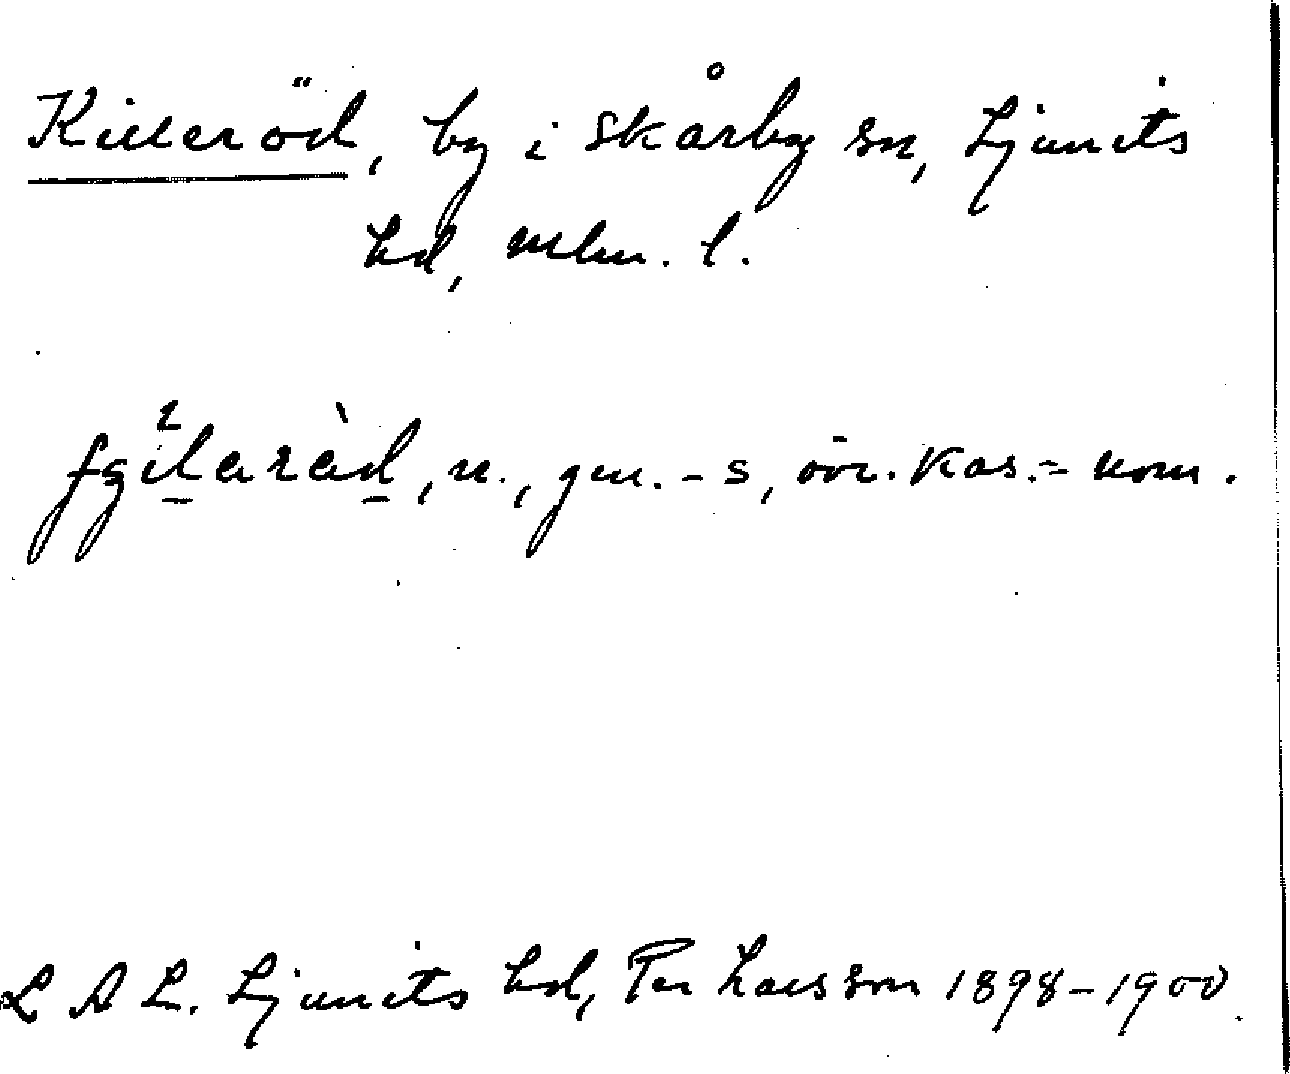 Killeröd, by i Skårby sn, Ljunits
hd, mlm. l.
n., gen. -s, övr. kas. = nom.
L A L. Ljunits hd, Per Larsson 1898-1900.